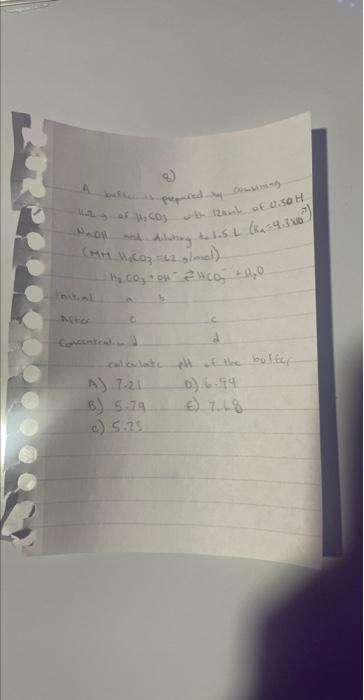 8)
A buffer is prepared by combining
11.2 g of H₂CO3 with 120mL of 0.50M
NaOH and diluting to 1.5 L (Ka=4.3x10⁻⁷)
(MM H₂CO3=62 g/mol)
H₂CO3 + OH⁻ ⇄ HCO3⁻ + H₂O
Initial a b
After c c
Concentration d d
calculate pH of the buffer
A) 7.21 D) 6.94
B) 5.79 E) 7.68
C) 5.73